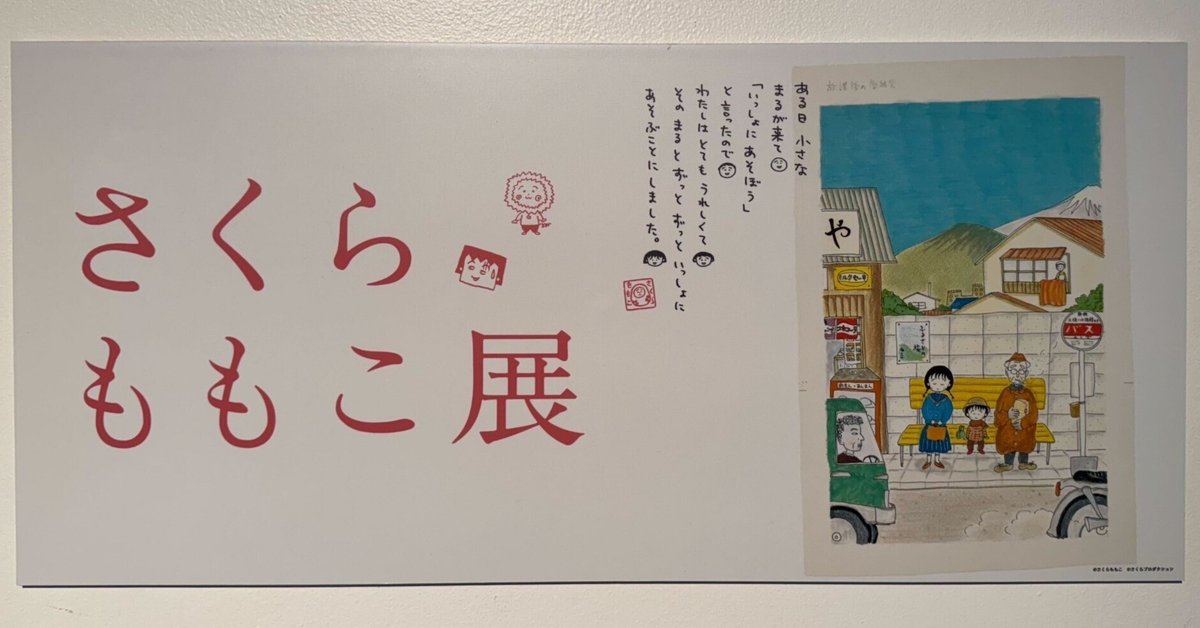 さくら
ももこ展
ある日 小さな
まるが来て
「いっしょに あそぼう」
と言ったので
わたしは とても うれしくて
その まると ずっと ずっと いっしょに
あそぶことに しました。
や
バス
©さくらももこ ©さくらプロダクション